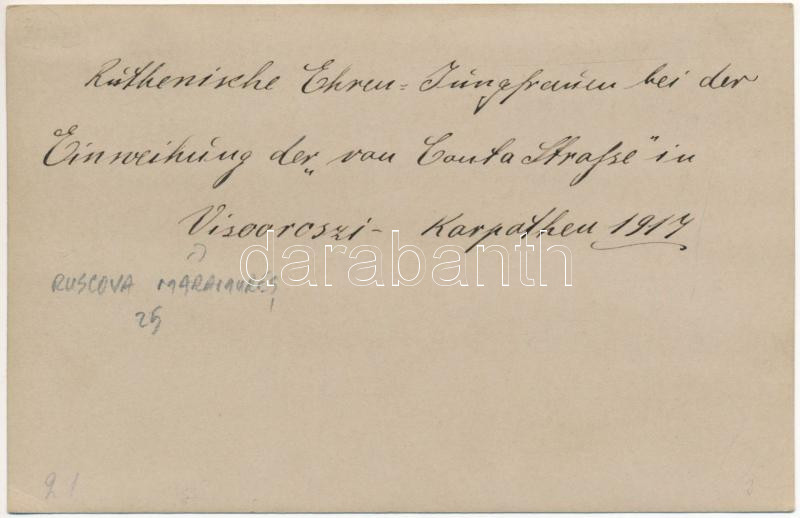 Ruthenische Ehren=Jungfrauen bei der
Einweihung der „von Conta Strasse" in
Visooroszi - Karpathen 1917
darabanth
RUSCOVA MARAMUREȘ
25
21